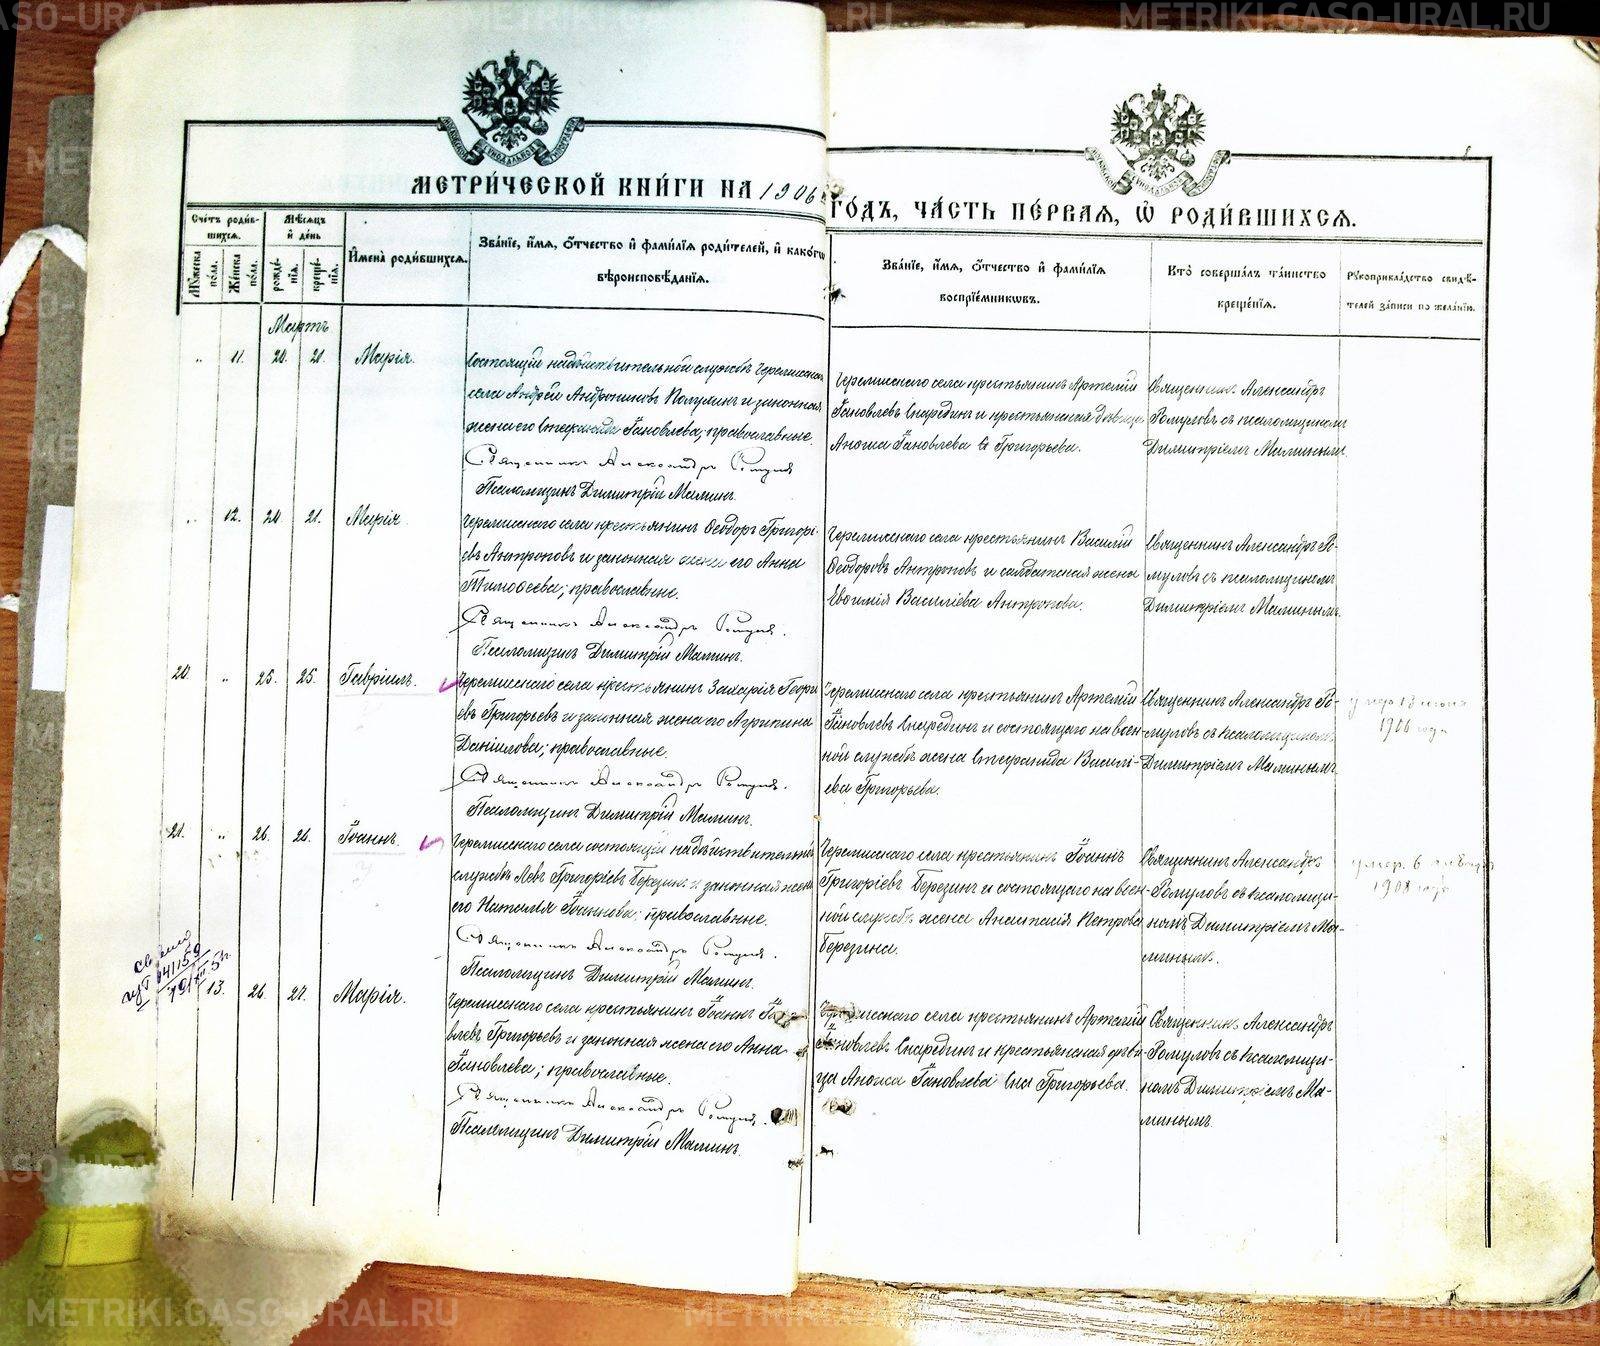 МЕТРИ́ЧЕСКОЙ КНИ́ГИ НА 1906
ГО́ДЪ, ЧА́СТЬ ПЕ́РВАЯ, Ѡ РОДИ́ВШИХСЯ.
Сче́тъ роди́в-
шихся.
Мꙋ́жеска пола.
Же́нска пола.
Мѣ́сяцъ
и де́нь
рожде́нія.
креще́нія.
Имена̀ роди́вшихся.
Зва́ніе, и́мя, о́тчество и фами́лія роди́телей, и како́гѡ
вѣроисповѣ́данія.
Зва́ніе, и́мя, о́тчество и фами́лія
воспріе́мникωвъ.
Кто̀ соверша́лъ та́инство
креще́нія.
Рꙋкоприкла́дство свидѣ́-
телей за́писи по жела́нію.
Мартъ
" 11. 20. 21. Марія.
Состоящій на дѣйствительной службѣ Черемисскаго
села Андрей Андрониковъ и законная
жена его Стефанида Іаковлева; православные.
Священникъ Александръ Ромуловъ
Псаломщикъ Димитрій Маминъ.
Черемисскаго села крестьянинъ Артемій
Іаковлевъ Снарединъ и крестьянская дѣвица
Анисія Іаковлева Григорьева.
Священникъ Александръ
Ромуловъ съ псаломщикомъ
Димитріемъ Маминымъ.
" 12. 20. 21. Марія.
Черемисскаго села крестьянинъ Ѳеодоръ Григорі-
евъ Антроповъ и законная жена его Анна
Тимоѳеева; православные.
Священникъ Александръ Ромуловъ.
Псаломщикъ Димитрій Маминъ.
Черемисскаго села крестьянинъ Василій
Ѳеодоровъ Антроповъ и солдатская жена
Евѳимія Василіева Антропова.
Священникъ Александръ Ро-
муловъ съ псаломщикомъ
Димитріемъ Маминымъ.
20. " 25. 25. Гавріилъ.
Черемисскаго села крестьянинъ Захарія Георгі-
евъ Григорьевъ и законная жена его Агрипина
Даніилова; православные.
Священникъ Александръ Ромуловъ.
Псаломщикъ Димитрій Маминъ.
Черемисскаго села крестьянинъ Артемій
Іаковлевъ Снарединъ и состоящаго на воен-
ной службѣ жена Стефанида Василі-
ева Григорьева.
Священникъ Александръ Ро-
муловъ съ псаломщикомъ
Димитріемъ Маминымъ.
1906 года
21. " 26. 26. Іоаннъ.
Черемисскаго села состоящій на дѣйствительной
службѣ Левъ Григоріевъ Березинъ и законная жена
его Наталія Іоаннова; православные.
Священникъ Александръ Ромуловъ.
Псаломщикъ Димитрій Маминъ.
Черемисскаго села крестьянинъ Іоаннъ
Григоріевъ Березинъ и состоящаго на воен-
ной службѣ жена Анастасія Петрова
Березина.
Священникъ Александръ
Ромуловъ съ псаломщи-
комъ Димитріемъ Ма-
минымъ.
умер. 6 января
1908 года
" 13. 26. 27. Марія.
Черемисскаго села крестьянинъ Іоаннъ Іако-
влевъ Григорьевъ и законная жена его Анна
Іаковлева; православные.
Священникъ Александръ Ромуловъ.
Псаломщикъ Димитрій Маминъ.
Черемисскаго села крестьянинъ Артемій
Іаковлевъ Снарединъ и крестьянская дѣви-
ца Анисія Іаковлева Григорьева.
Священникъ Александръ
Ромуловъ съ псаломщи-
комъ Димитріемъ Ма-
минымъ.
METRIKI.GASO-URAL.RU